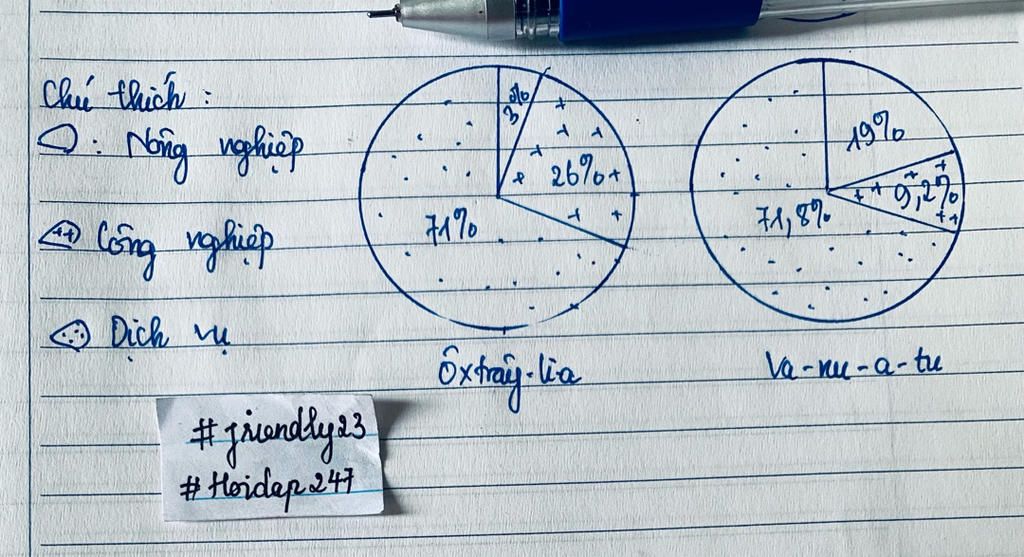 Chú thích :
: Nông nghiệp
Công nghiệp
Dịch vụ
3%
26%
71%
Ôxtrây-li-a
19%
9,2%
71,8%
Va-nu-a-tu
#friendly23
#Hoidap247